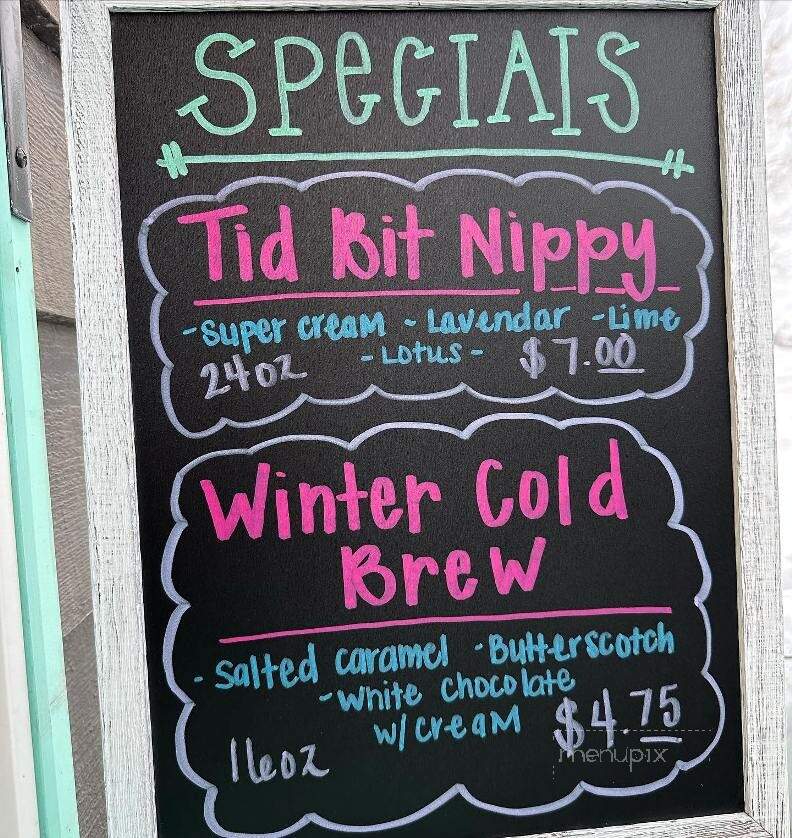 SPECIAlS
Tid Bit Nippy
-super cream - Lavendar -Lime
24oz - Lotus - $7.00
Winter Cold
Brew
- Salted caramel - Butterscotch
-White chocolate
w/ cream $4.75
16oz
menupix